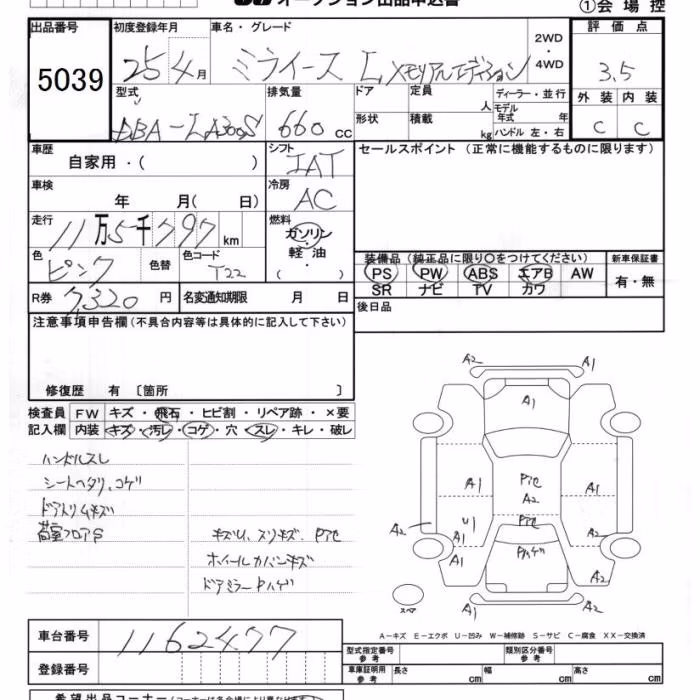 オークション出品申込書
①会場控
出品番号 5039
初度登録年月 25年4月
車名・グレード ミライース L メモリアルエディション
2WD・4WD
評価点 3.5
外装 C 内装 C
型式 DBA-LA300S
排気量 660 CC
ドア 定員 人
ディーラー・並行
モデル年式 年
形状 積載 kg
ハンドル 左・右
車歴 自家用・( )
シフト IAT
セールスポイント (正常に機能するものに限ります)
車検 年 月( 日)
冷房 AC
走行 11万5千797km
燃料 ガソリン・軽油・( )
色 ピンク 色替
色コード T22
装備品 (純正品に限り〇をつけてください)
新車保証書 有・無
PS PW ABS エアB AW
SR ナビ TV カワ
R券 7,320 円
名変通知期限 月 日
後日品
注意事項申告欄 (不具合内容等は具体的に記入して下さい)
修復歴 有 〔箇所 〕
検査員記入欄
FW キズ・飛石・ヒビ割・リペア跡・×要
内装 キズ・汚レ・コゲ・穴・スレ・キレ・破レ
ハンドルスレ
シートヘタリ、コゲ
ドアトリムキズ
荷室フロアS
キズU、スリキズ、Pアセ
ホイールカバーキズ
ドアミラーPハゲ
A2 A1
A1
A1 Pアセ A1
A2
A2 U1 Pアセ
A1 Pハゲ A2
A1 A2
A2
スペア
A1 A2
A-キズ E-エクボ U-凹み W-補修跡 S-サビ C-腐食 XX-交換済
車台番号 1162477
登録番号
型式指定番号 参考
類別区分番号 参考
車庫証明用 参考 長さ cm 幅 cm 高さ cm
希望出品コーナー